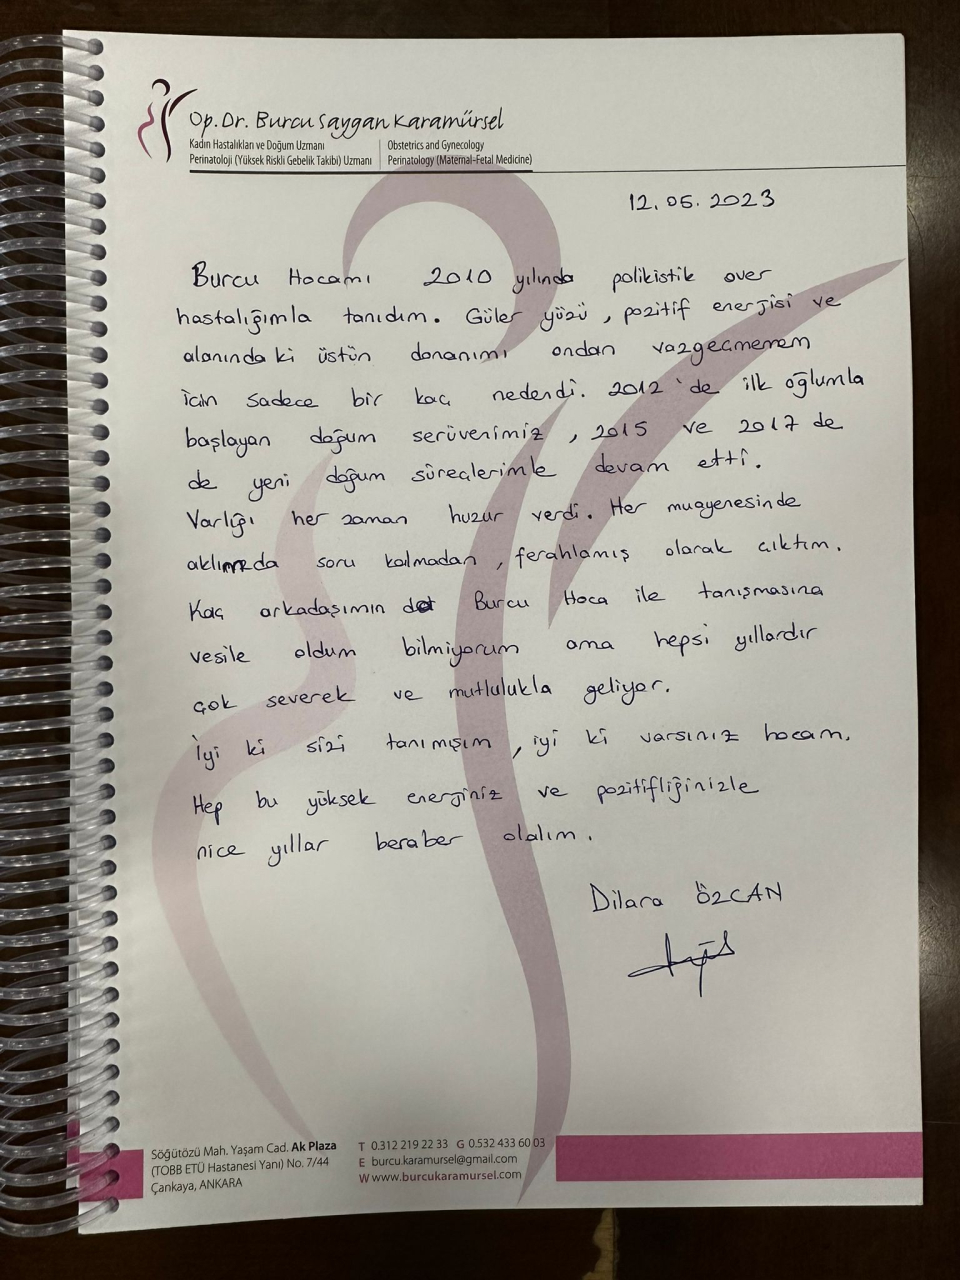 Op. Dr. Burcu Saygan Karamürsel
Kadın Hastalıkları ve Doğum Uzmanı
Perinatoloji (Yüksek Riskli Gebelik Takibi) Uzmanı
Obstetrics and Gynecology
Perinatology (Maternal-Fetal Medicine)
12.05.2023
Burcu Hocamı 2010 yılında polikistik over
hastalığımla tanıdım. Güler yüzü, pozitif enerjisi ve
alanında ki üstün donanımı ondan vazgeçmemem
için sadece bir kaç nedendi. 2012'de ilk oğlumla
başlayan doğum serüvenimiz, 2015 ve 2017 de
de yeni doğum süreçlerimle devam etti.
Varlığı her zaman huzur verdi. Her muayenesinde
aklımda soru kalmadan, ferahlamış olarak çıktım.
Kaç arkadaşımın da Burcu Hoca ile tanışmasına
vesile oldum bilmiyorum ama hepsi yıllardır
çok severek ve mutlulukla geliyor.
İyi ki sizi tanımışım, iyi ki varsınız hocam.
Hep bu yüksek enerjiniz ve pozitifliğinizle
nice yıllar beraber olalım.
Dilara ÖZCAN
Söğütözü Mah. Yaşam Cad. Ak Plaza
(TOBB ETÜ Hastanesi Yanı) No. 7/44
Çankaya, ANKARA
T 0.312 219 22 33 G 0.532 433 60 03
E burcu.karamursel@gmail.com
W www.burcukaramursel.com